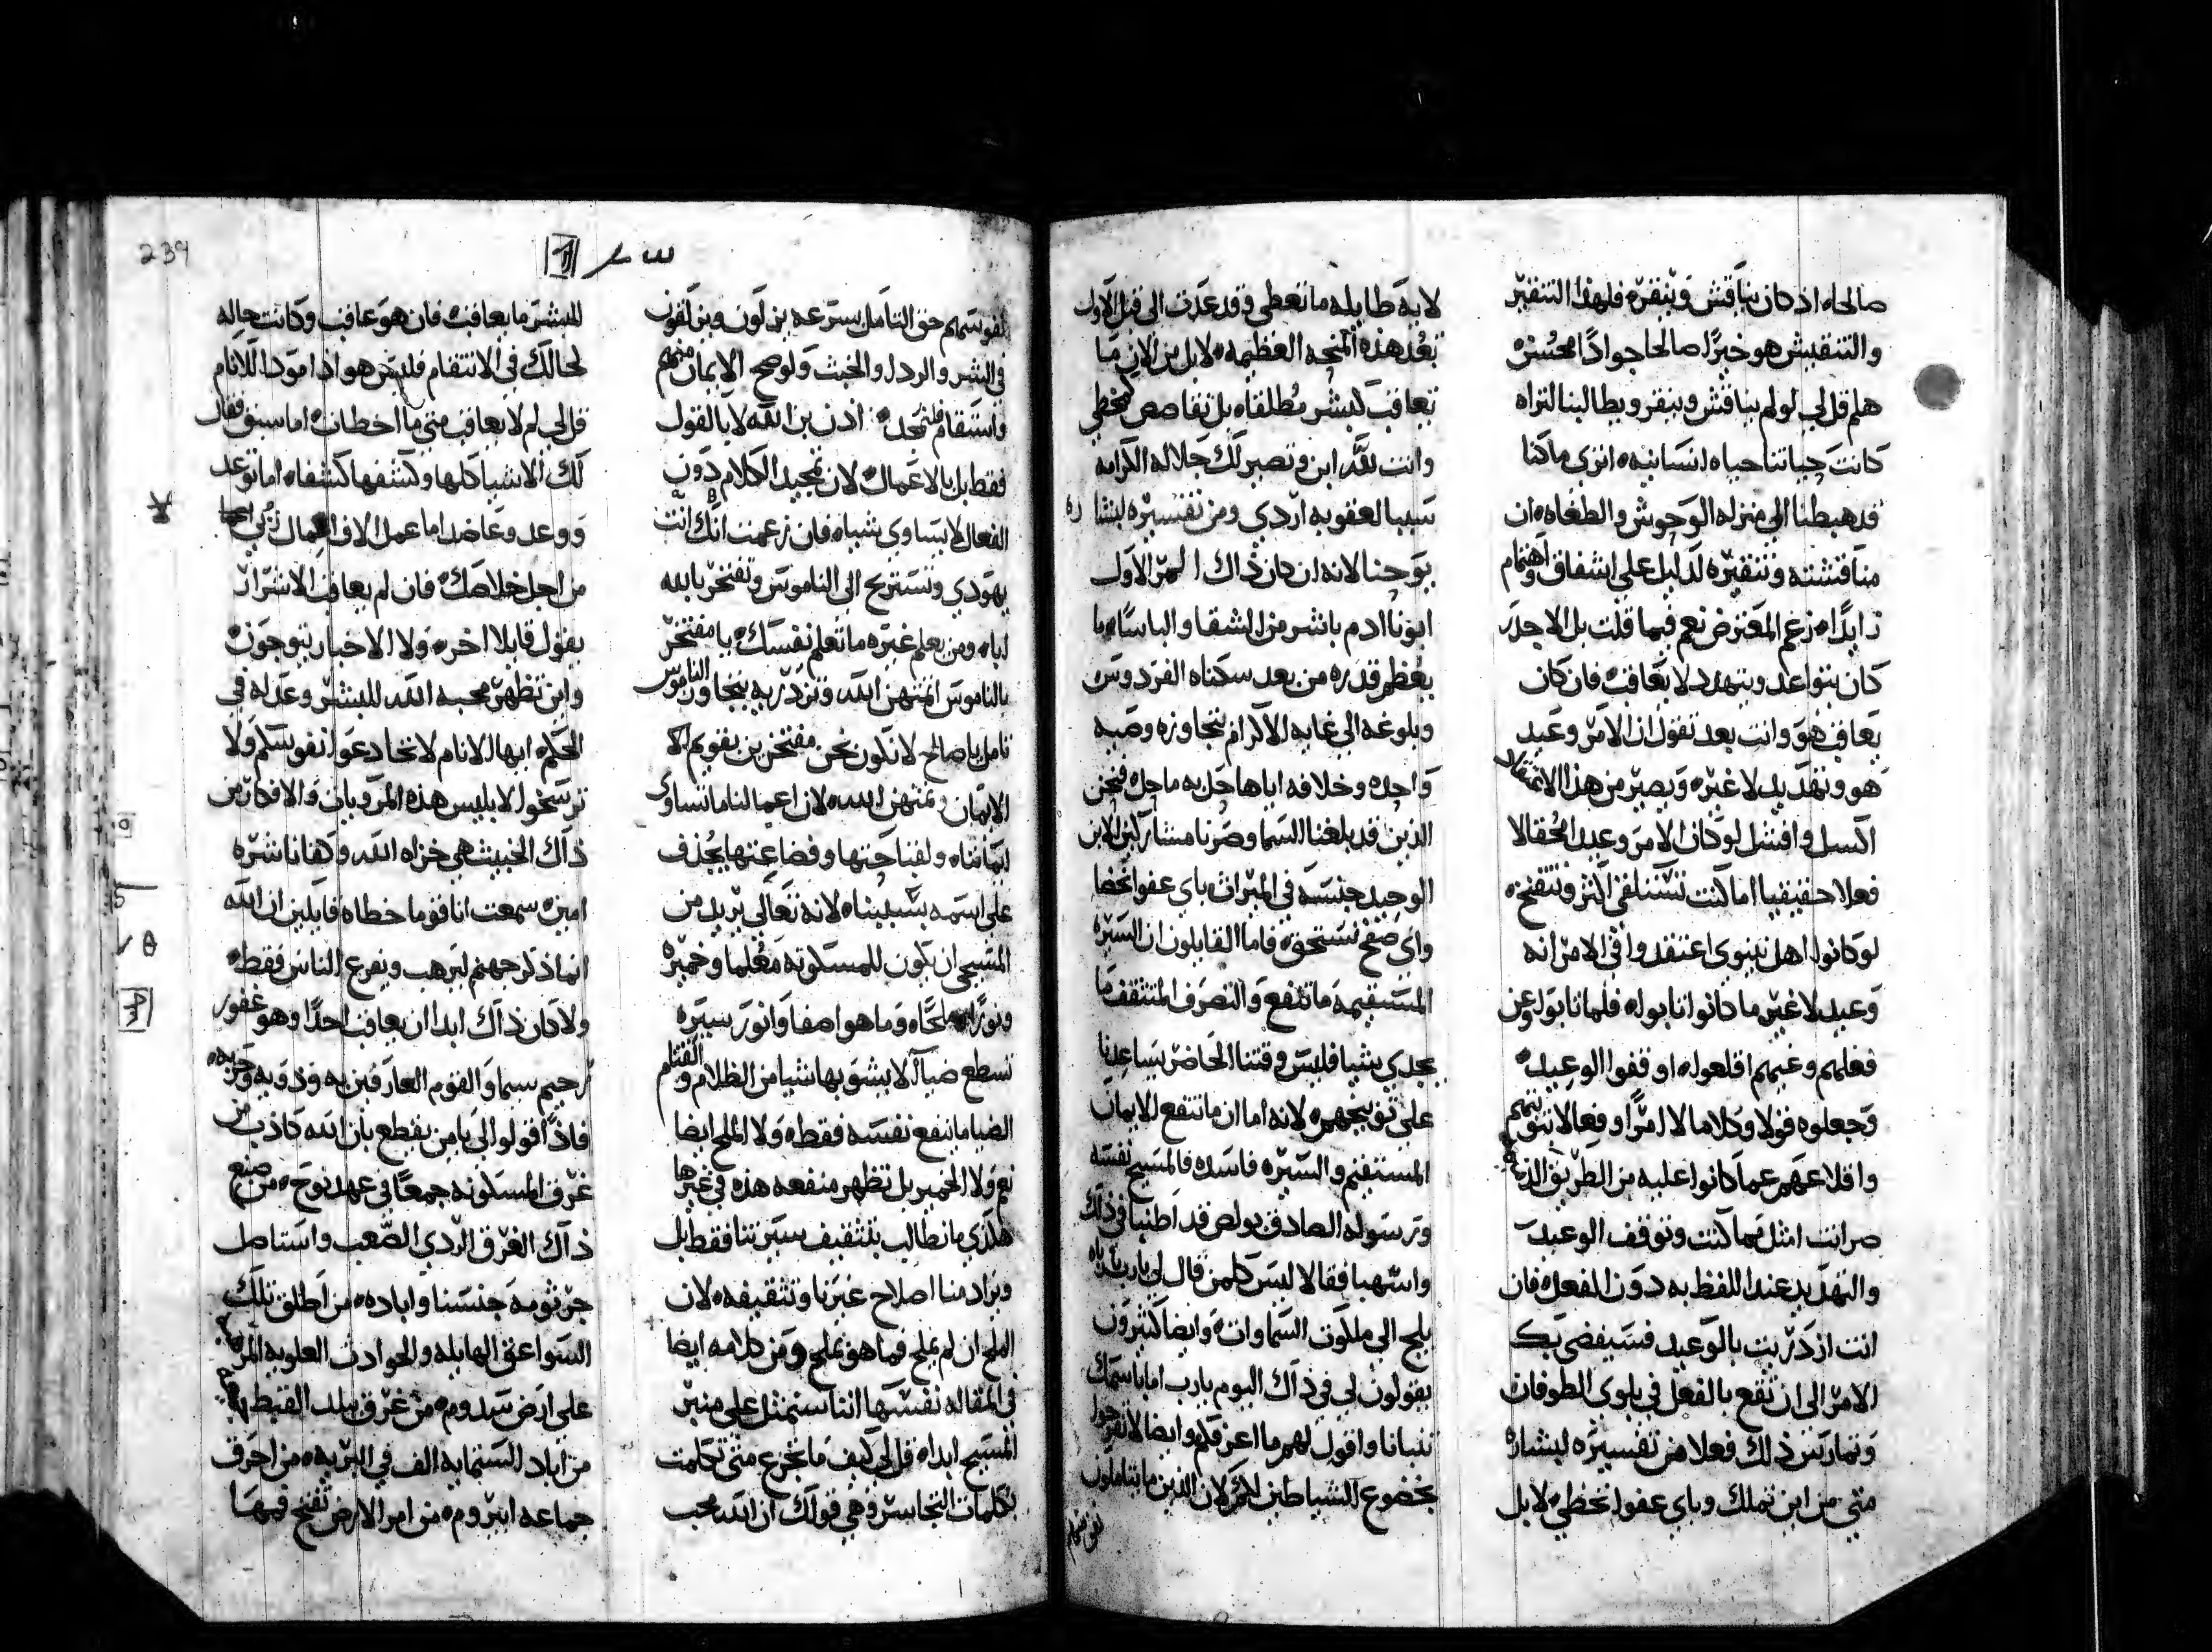 صالحاه اذ كان يناقش وينقره فلهذا التنقير
والتنقيش هو خيرًا صالحا جوادًا محسنه
هلم قل لي لو لم يناقش وينقر ويطالبنا اتراه
كانت حياتنا حياه انسانيه اترى ما كنا
قد هبطنا الي منزله الوحوش والطغاه ان
مناقشته وتنقيره لدليل علي اشفاق واهتمام
زايدًا ه زعم المعترض نعم فيما قلت بل الاجدر
كان يتواعد ويتهدد لا يعاقب فان كان
يعاقب هو وانت بعد تقول ان الامر وعيد
هو وتهديد لا غيره ويصير من هذا
اكسل وافشل لو كان الامر وعيد الحقا لا
فعلا حقيقيا اما كنت تستلقي اكثر وتتفنخه
لو كانوا اهل نينوي اعتقدوا في الامر انه
وعيد لا غير ما كانوا تابوا ه فلما تابوا عن
فعلهم وغيهم اقلعوا ه اوقفوا الوعيد
وجعلوه قولا وكلاما لا امرًا وفعالا
واقلاعهم عما كانوا عليه من الطريق
صر انت امثل مما كنت وتوقف الوعيد
والتهديد عند اللفظ به دون الفعل فان
انت ازدريت بالوعيد فسيفضي بك
الامر الي ان تقع بالفعل في بلوي الطوفان
وتمارس ذلك فعلا من تفسيره لبشاره
متي من اين نملك وباي عفوا نحظي لا بل
لا يه طايله ما تعطي وقد عدت الي قبل الاول
بعد هذه المنحه العظيمه لا بل من الان ما
تعاقب كبشر مطلقاه بل تقاصص كمخطي
وانت لله ابن وتصير لك جلاله الكرامه
سببا لعقوبه اردي ومن تفسيره لبشاره
يوحنا لانه ان كان ذاك المر الاول
ابونا ادم باشر من الشقا والباساء ما
يعظم قدره من بعد سكناه الفردوس
وبلوغه الي غايه الاكرام بتجاوزه وصيه
واحده وخلافه اياها حل به ما حل فنحن
الذين قد بلغنا السما وصرنا مشاركين الابن
الوحيد جنسه في الميراث باي عفوا نحظا
واي صفح نستحق فاما القايلون ان السيره
المستقيمه ما تنفع والتصرف المتثقف ما
يجدي شيا فليس وقتنا الحاضر يساعدنا
علي توبيخهم لانه اما ان ما تنتفع الايمان
المستقيم والسيره فاسده فالمسيح نفسه
ورسوله الصادق بولص قد اطنبا في ذلك
واسهبا فقالا ليس كلمن قال لي يا رب يا رب
يلج الي ملكوت السماوات وايضا كثيرون
يقولون لي في ذاك اليوم يا رب اما باسمك
تنبانا واقول لهم ما اعرفكم وايضا لا تفرحوا
بخضوع الشياطين لكم لان الذين ما يتاملون
239
نفوسهم حق التامل بسرعه يزلون وينزلقون
في الشر والردا والخبث ولو صح الايمان منهم
واستقام فلنمجد اذن ابن الله لا بالقول
فقط بل بالاعمال لان تمجيد الكلام دون
الفعال لا يساوي شياه فان زعمت انك انت
يهودي وتستريح الي الناموس وتفتخر بالله
اياه ومن يعلم غيره ما تعلم نفسك يا مفتخر
بالناموس اتمتهن الله وتزدريه بتجاوز الناموس
تامل يا صالح لا نكون نحن مفتخرين بقويم
الايمان ونمتهن الله لان اعمالنا ما تساوي
ايماننا ه ولقباحتها وفضاعتها يجدف
علي اسمه بسببنا ه لانه تعالي يريد من
المسيحي ان يكون للمسكونه معلما وخميره
ونورًا وملحًا ه وما هو اصفا وانور سيره
تسطع ضيا لا يشوبها شيا من الظلام والقتام
الضيا ما ينفع نفسه فقط ه ولا الملح ايضا
نعم ولا الخمير بل تظهر منفعه هذه في غيرها
هكذي ما نطالب بتثقيف سيرتنا فقط بل
ويراد منا اصلاح غيرنا وتثقيفه لان
الملح ان لم يملح فما هو بملح ومن كلامه ايضا
في المقاله نفسها اننا سنمثل علي منبر
المسيح ابداه قل لي كيف ما تجزع متي تكلمت
بكلمات التجاسر وهي قولك ان الله محب
للبشر ما يعاقب فان هو عاقب وكانت حاله
لحالك في الانتقام فليس هو اذا مودا للانام
قل لي لم لا يعاقب متي ما اخطات اما سبق فقال
لك الاشيا كلها وكشفها كشفاه اما توعد
ووعد وعاضد اما عمل الاف اعمال
من اجل خلاصك فان لم يعاقب الاشرار
يقول قايلا اخره ولا الاخيار يتوجون
واين تظهر محبه الله للبشر وعدله في
الحكم ه ايها الانام لا تخادعوا نفوسكم ولا
ترسخوا لابليس هذه المروبان والافكار من
ذاك الخبيث هي خزاه الله وكفانا شره
امين سمعت انا قوما خطاه قايلين ان الله
انما ذكر جهنم ليرهب ويفزع الناس فقط
ولا كان ذاك ابدا ان يعاقب احدًا وهو غفور
رحيم سيما والقوم العارفين به وذويه وحزبه
فاذًا قولوا لي يا من يقطع بان الله كاذب من
غرق المسكونه جمعًا في عهد نوح ه من صنع
ذاك الغرق الردي الصعب واستاصل
جرثومه جنسنا واباده ه من اطلق تلك
الصواعق الهايله والحوادث العلويه
علي ارض سدوم ه من غرق ببلد القبط
من اباد الستمايه الف في البريه ه من احرق
جماعه ابيروم ه من امر الارض تفتح فمها